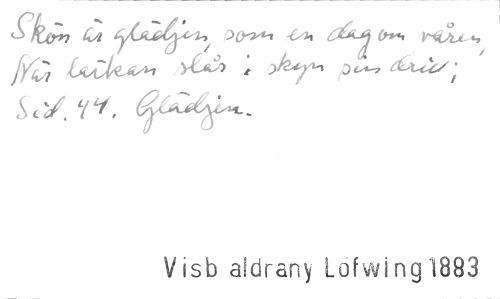 Skön är glädjen, som en dag om våren,
När lärkan slår i skyn sin drill;
Sid. 44. Glädjen.
Visb aldrany Löfwing 1883